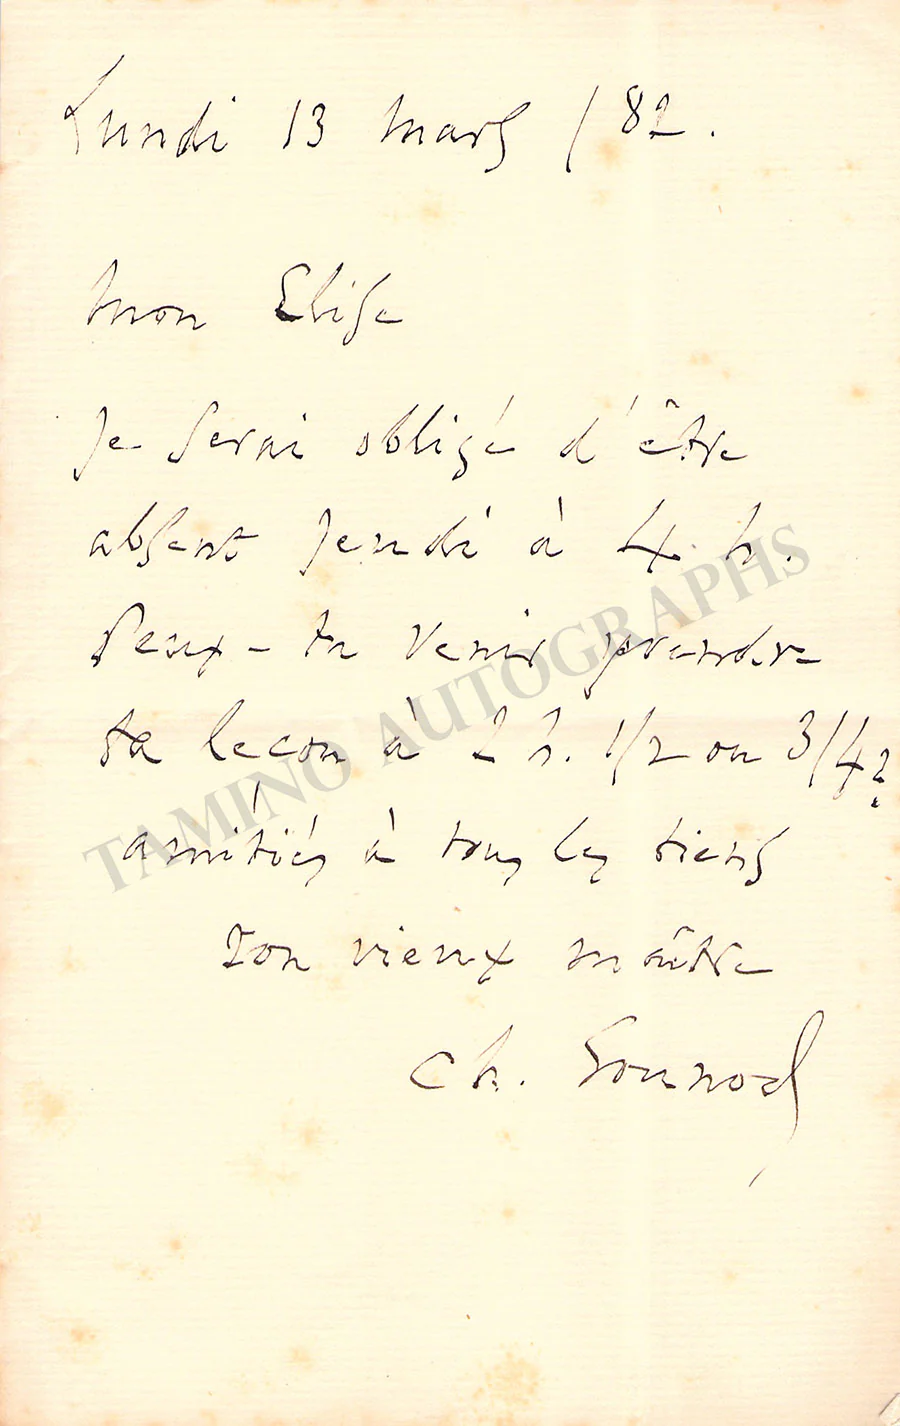 Lundi 13 mars / 82.
Mon Elise
Je serai obligé d'être
absent Jeudi à 4. h.
Peux-tu venir prendre
ta leçon à 2 h. 1/2 ou 3/4?
amitiés à tous les tiens
Ton vieux maître
Ch. Gounod
TAMINO AUTOGRAPHS